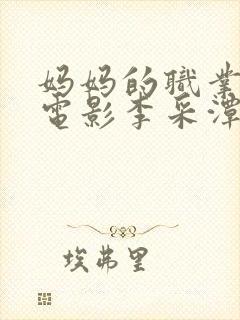 妈妈的職業
電影李采潭
埃弗里